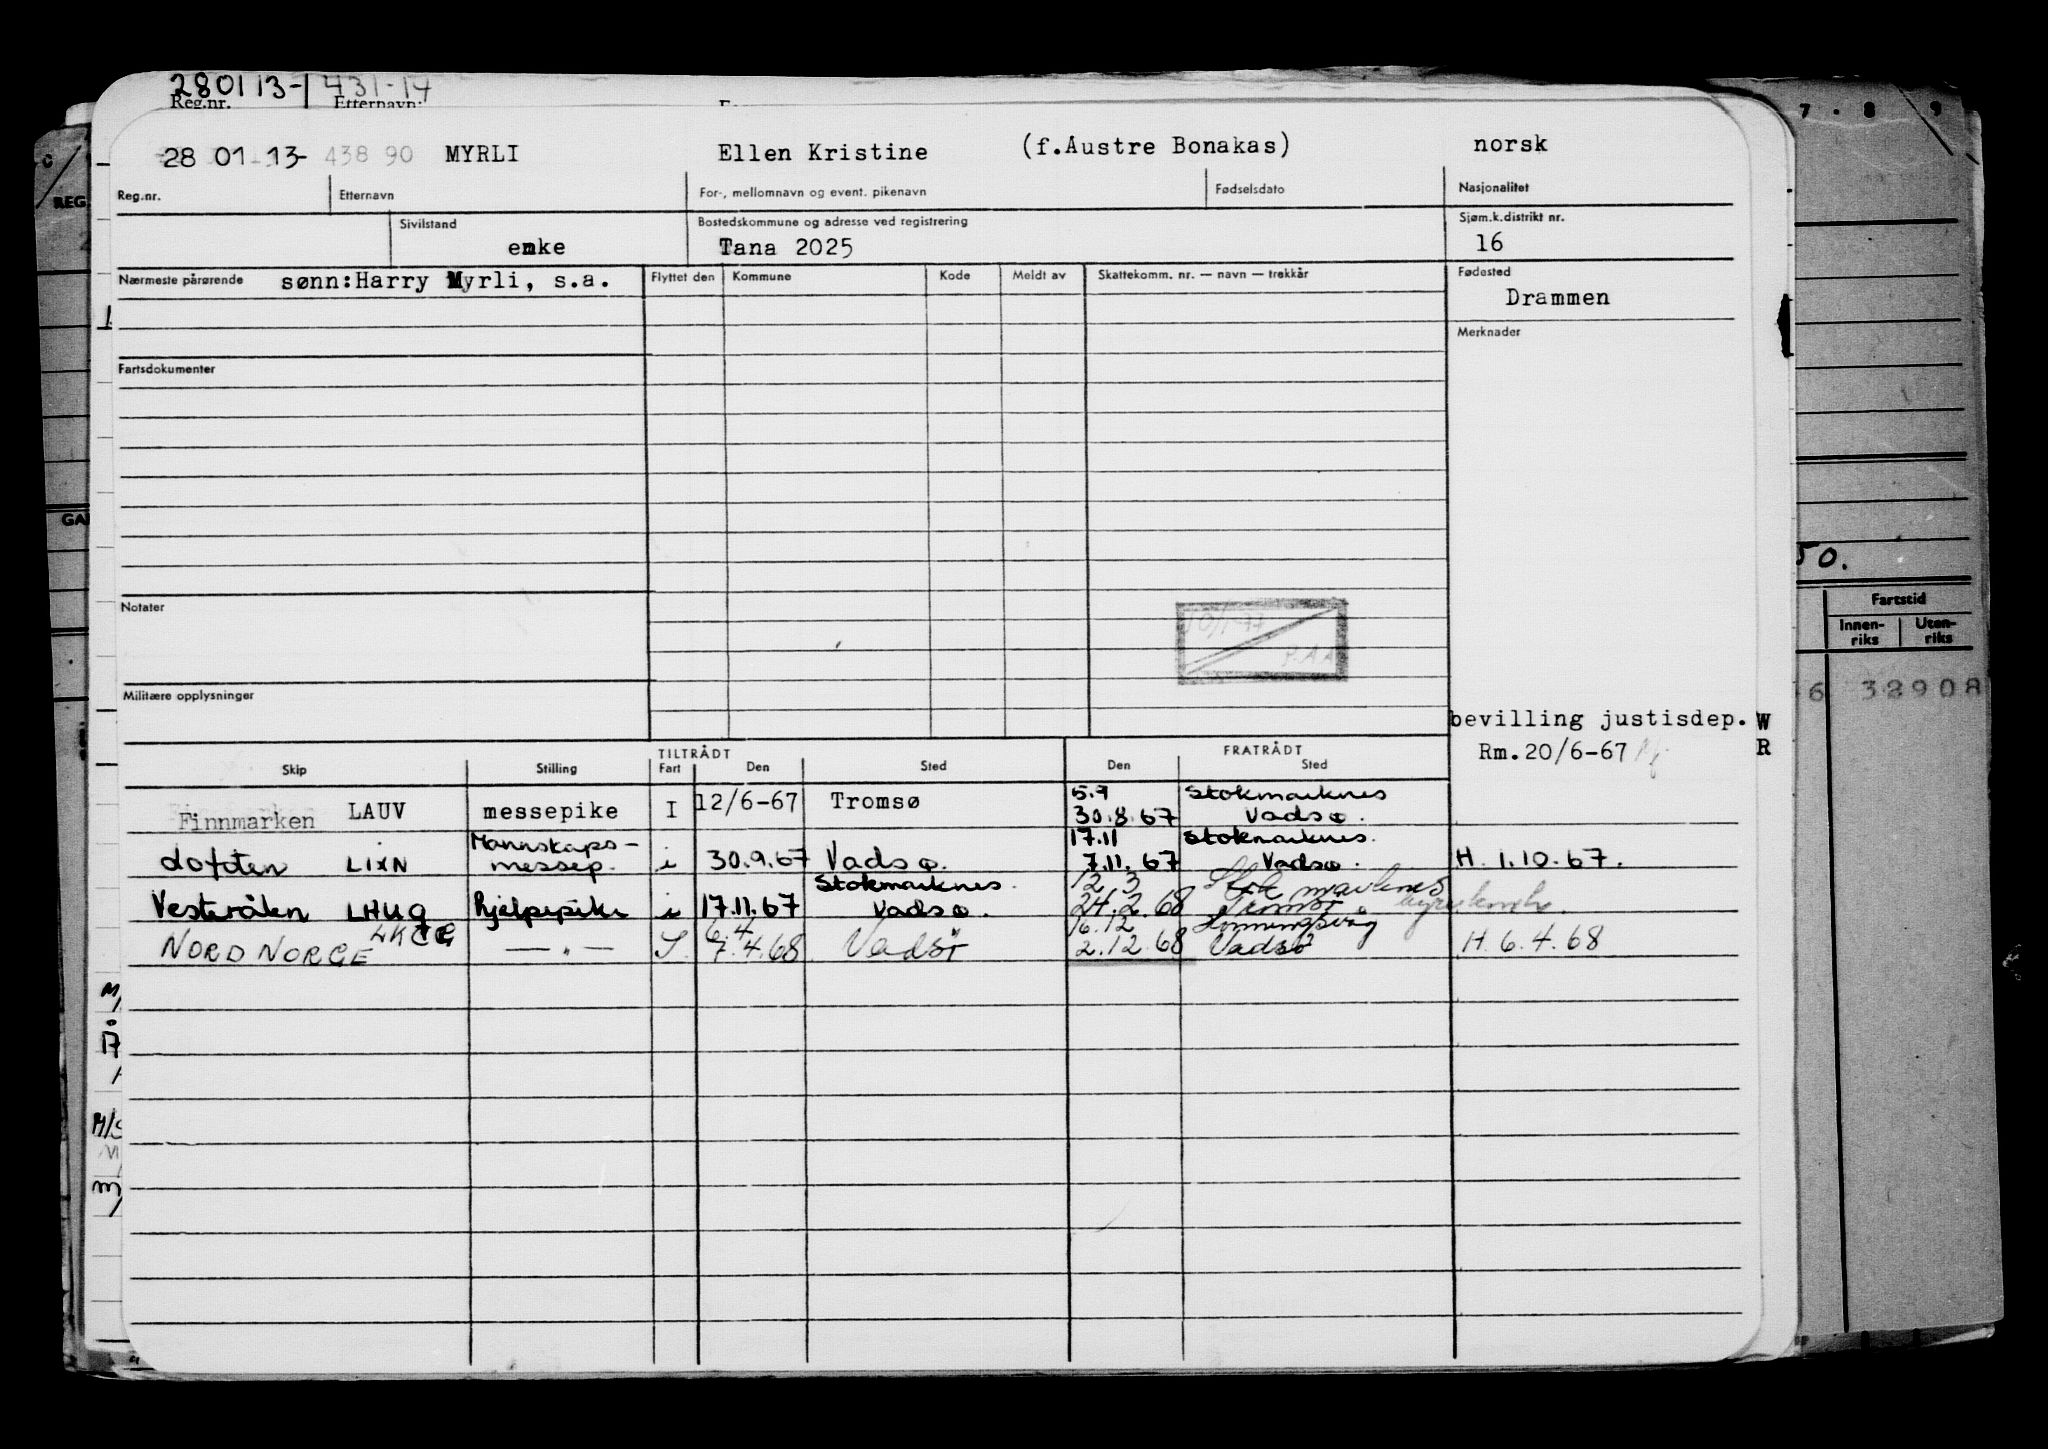 280113-431-14
Reg.nr. Etternavn:
28 01 13- 438 90 MYRLI Ellen Kristine (f.Austre Bonakas) norsk
Reg.nr. Etternavn For-, mellomnavn og event. pikenavn Fødselsdato Nasjonalitet
Sivilstand Bostedskommune og adresse ved registrering Sjøm.k.distrikt nr.
enke Tana 2025 16
Nærmeste pårørende sønn:Harry Myrli, s.a. Flyttet den Kommune Kode Meldt av Skattekomm. nr. — navn — trekkår Fødested
Drammen
Merknader
Fartsdokumenter
Notater
Militære opplysninger
bevilling justisdep.
Rm.20/6-67
TILTRÅDT FRATRÅDT
Skip Stilling Fart Den Sted Den Sted
5.9 Stokmarknes
Finnmarken LAUV messepike I 12/6-67 Tromsø 30.8.67 Vadsø.
Mannskaps- 17.11 Stokmarknes.
Lofoten LIXN messep. i 30.9.67 Vadsø. 7.11.67 Vadsø. H. 1.10.67.
Stokmarknes. 12 3
Vesterålen LHUQ Hjelpepike i 17.11.67 Vadsø. 24.2.68 Tromsø
6.4 16.12 Honningsvåg
NORD NORGE — " — S. 7.4.68 Vadsø 2.12.68 Vadsø H. 6.4.68
7 8 9
REG
GA
50.
Fartstid
Innen-riks Uten-riks
6 32908
W
R